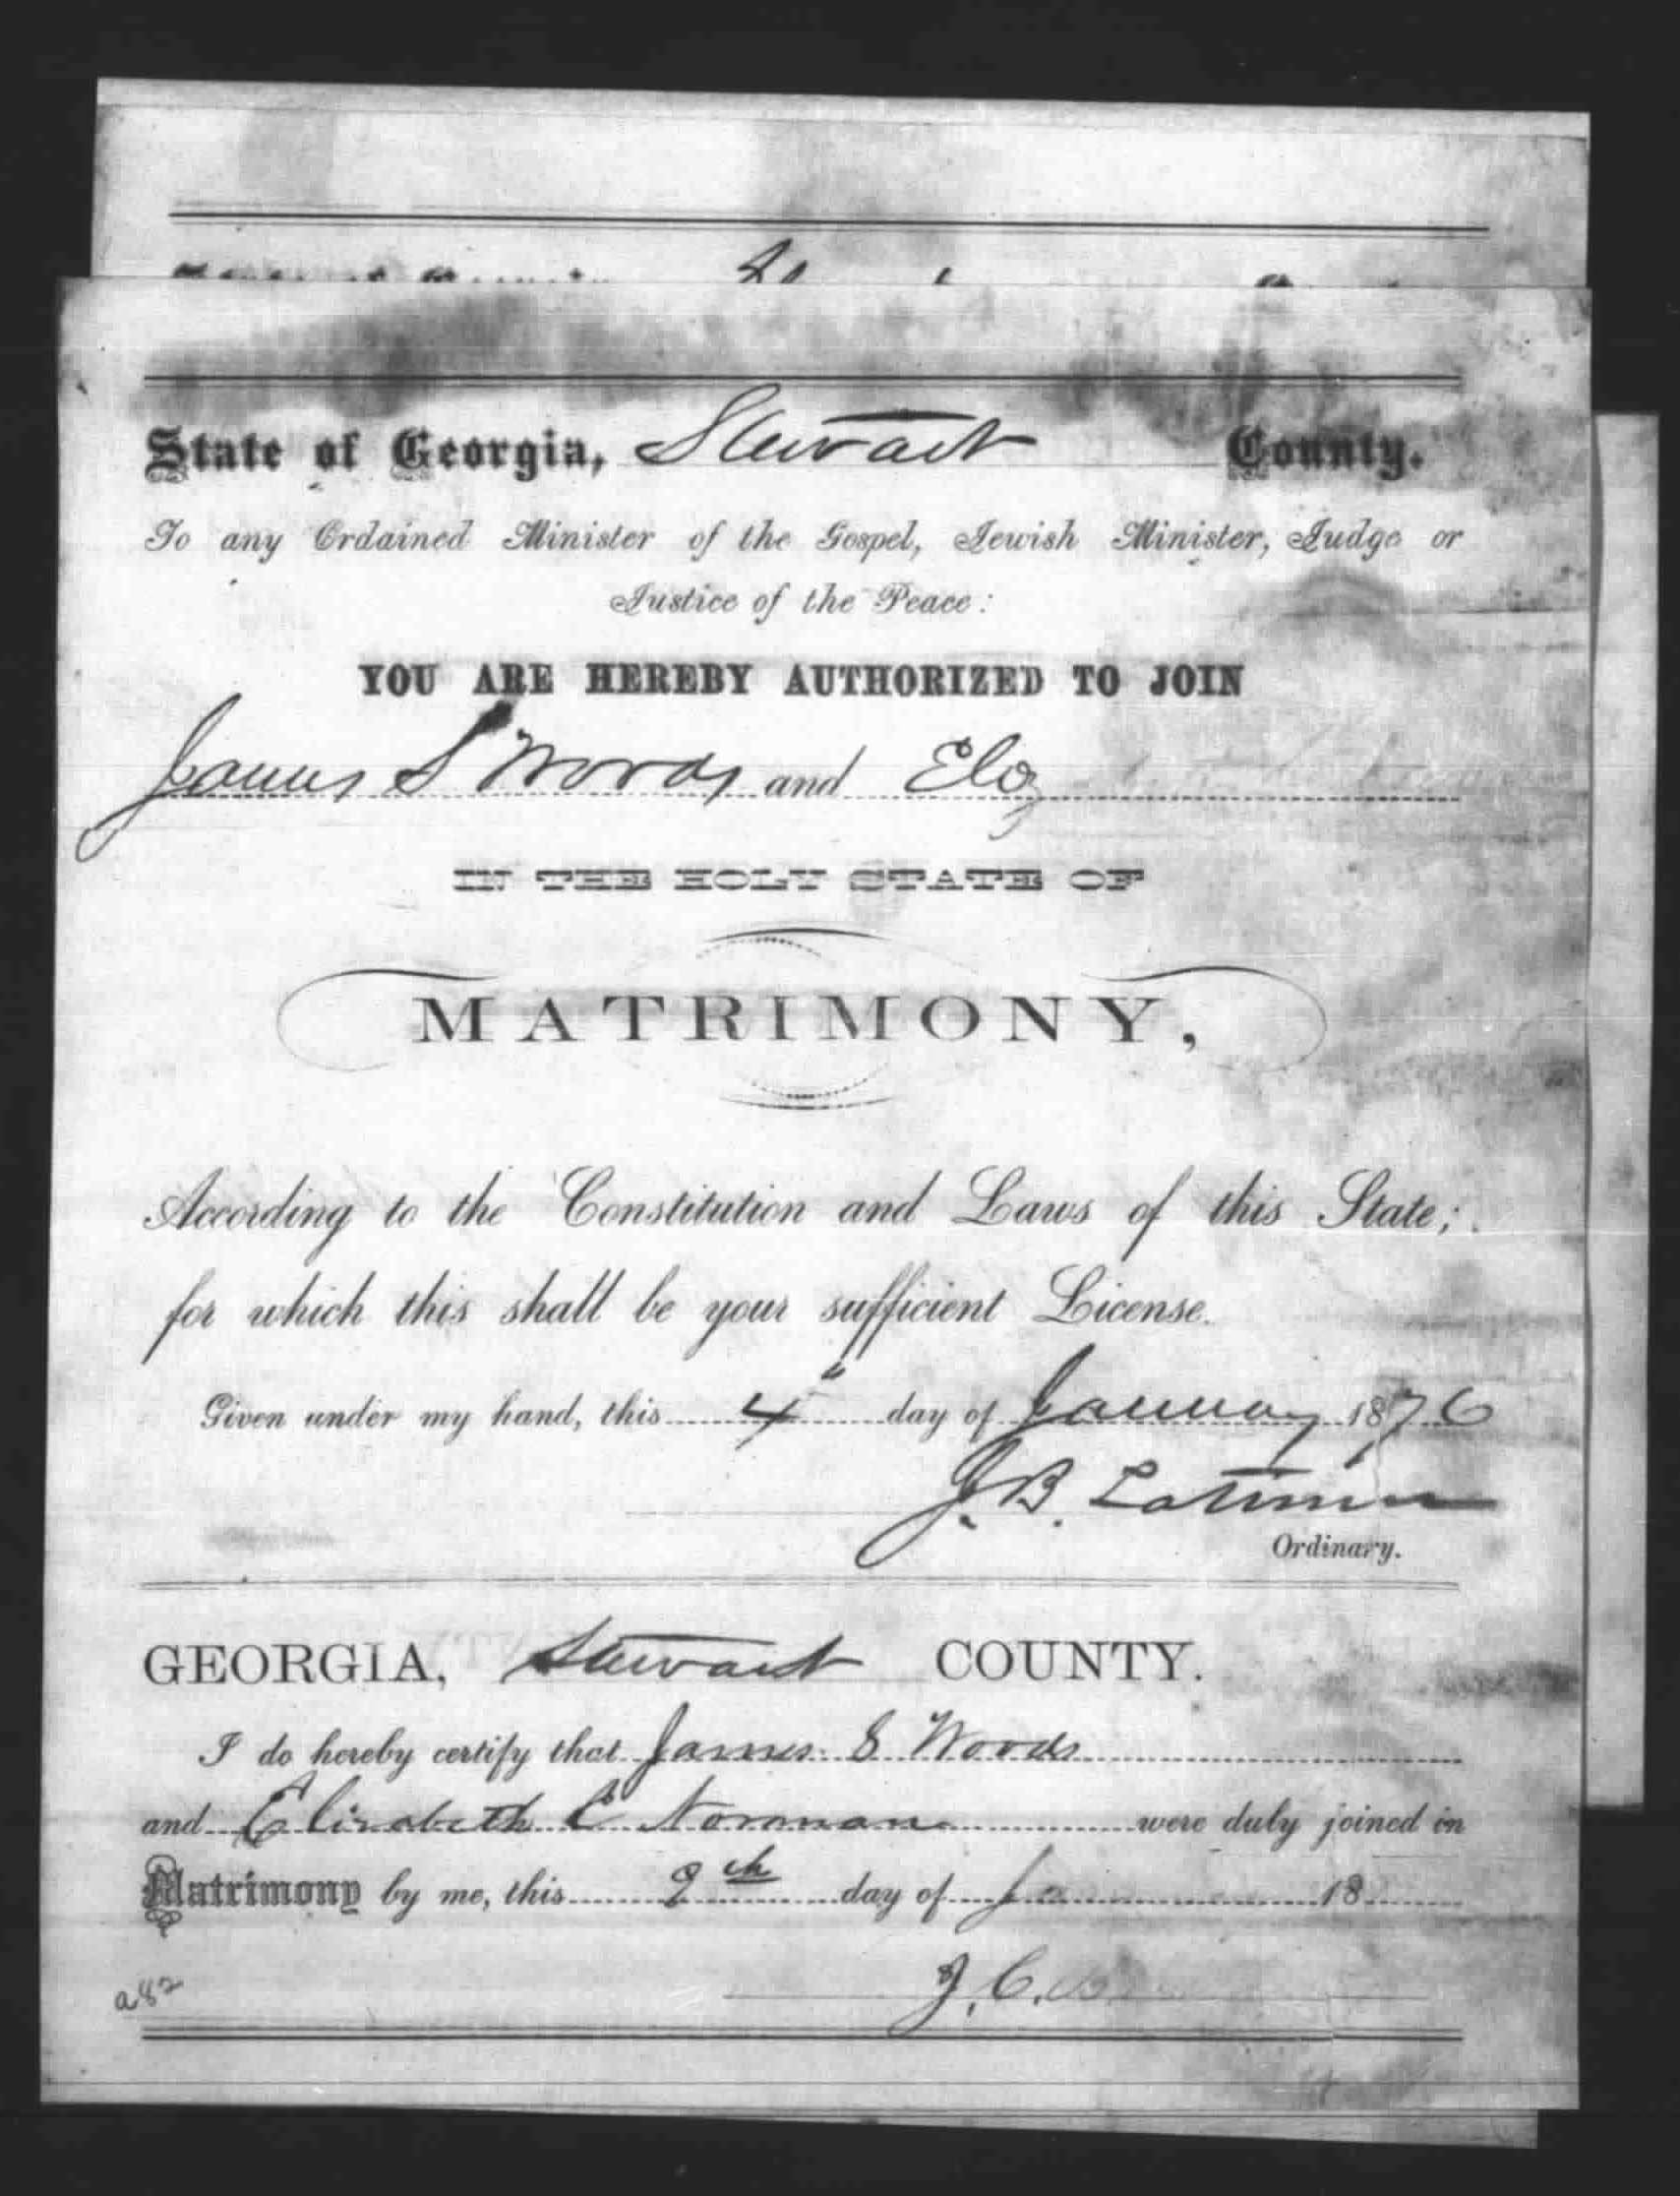 State of Georgia, Stewart County.
To any Ordained Minister of the Gospel, Jewish Minister, Judge or
Justice of the Peace:
YOU ARE HEREBY AUTHORIZED TO JOIN
James S Woods and
IN THE HOLY STATE OF
MATRIMONY,
According to the Constitution and Laws of this State;
for which this shall be your sufficient License.
Given under my hand, this 4" day of January 1876
J. B. Latimer
Ordinary.
GEORGIA, Stewart COUNTY.
I do hereby certify that James S Woods
and Elizabeth E Norman were duly joined in
Matrimony by me, this 9th day of 18
J. C.
a82